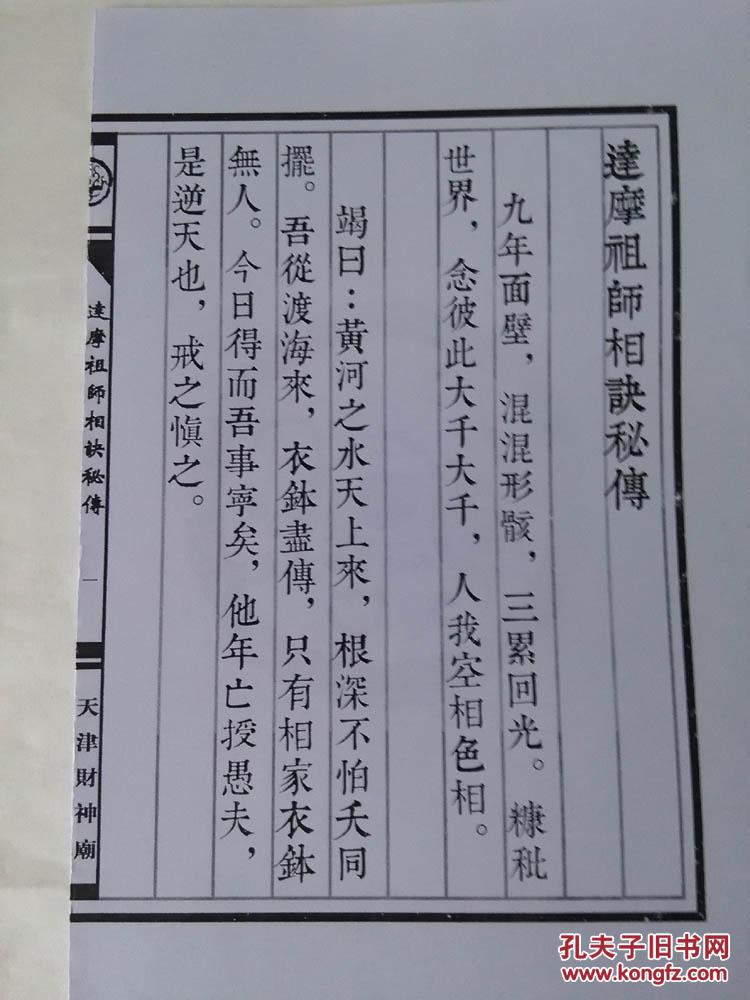 達摩祖師相訣秘傳
九年面壁，混混形骸，三累回光。糠秕
世界，念彼此大千大千，人我空相色相。
竭曰：黃河之水天上來，根深不怕夭同
擺。吾從渡海來，衣鉢盡傳，只有相家衣鉢
無人。今日得而吾事寧矣，他年亡授愚夫，
是逆天也，戒之慎之。
達摩祖師相訣秘傳
一
天津財神廟
孔夫子旧书网
www.kongfz.com